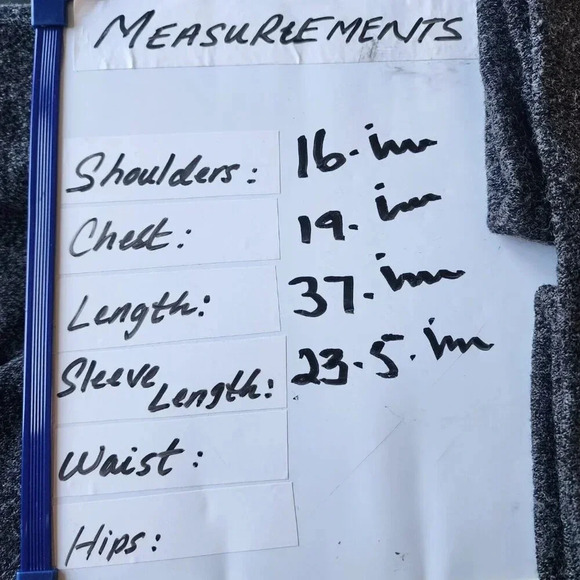 MEASUREMENTS
Shoulders: 16. in
Chest: 19. in
Length: 37. in
Sleeve Length: 23.5. in
Waist:
Hips: